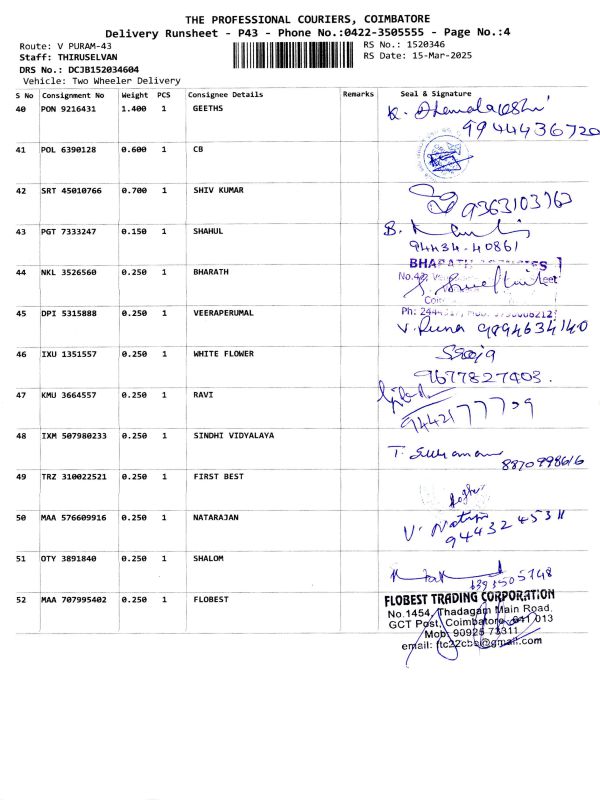 THE PROFESSIONAL COURIERS, COIMBATORE
Delivery Runsheet - P43 - Phone No.:0422-3505555 - Page No.:4
Route: V PURAM-43
RS No.: 1520346
Staff: THIRUSELVAN
RS Date: 15-Mar-2025
DRS No.: DCJB152034604
Vehicle: Two Wheeler Delivery
S No Consignment No Weight PCS Consignee Details Remarks Seal & Signature
40 PON 9216431 1.400 1 GEETHS
9944436720
41 POL 6390128 0.600 1 CB
42 SRT 45010766 0.700 1 SHIV KUMAR
9363103763
43 PGT 7333247 0.150 1 SHAHUL B.
94434-40861
44 NKL 3526560 0.250 1 BHARATH BHARATH
45 DPI 5315888 0.250 1 VEERAPERUMAL
9894634140
46 IXU 1351557 0.250 1 WHITE FLOWER
9677827403.
47 KMU 3664557 0.250 1 RAVI
48 IXM 507980233 0.250 1 SINDHI VIDYALAYA
8870998616
49 TRZ 310022521 0.250 1 FIRST BEST
50 MAA 576609916 0.250 1 NATARAJAN
51 OTY 3891840 0.250 1 SHALOM
52 MAA 707995402 0.250 1 FLOBEST FLOBEST TRADING CORPORATION
No.1454, Thadagam Main Road,
GCT Post, Coimbatore - 641 013
Mob: 90925 73311
email: ftc22cbb@gmail.com